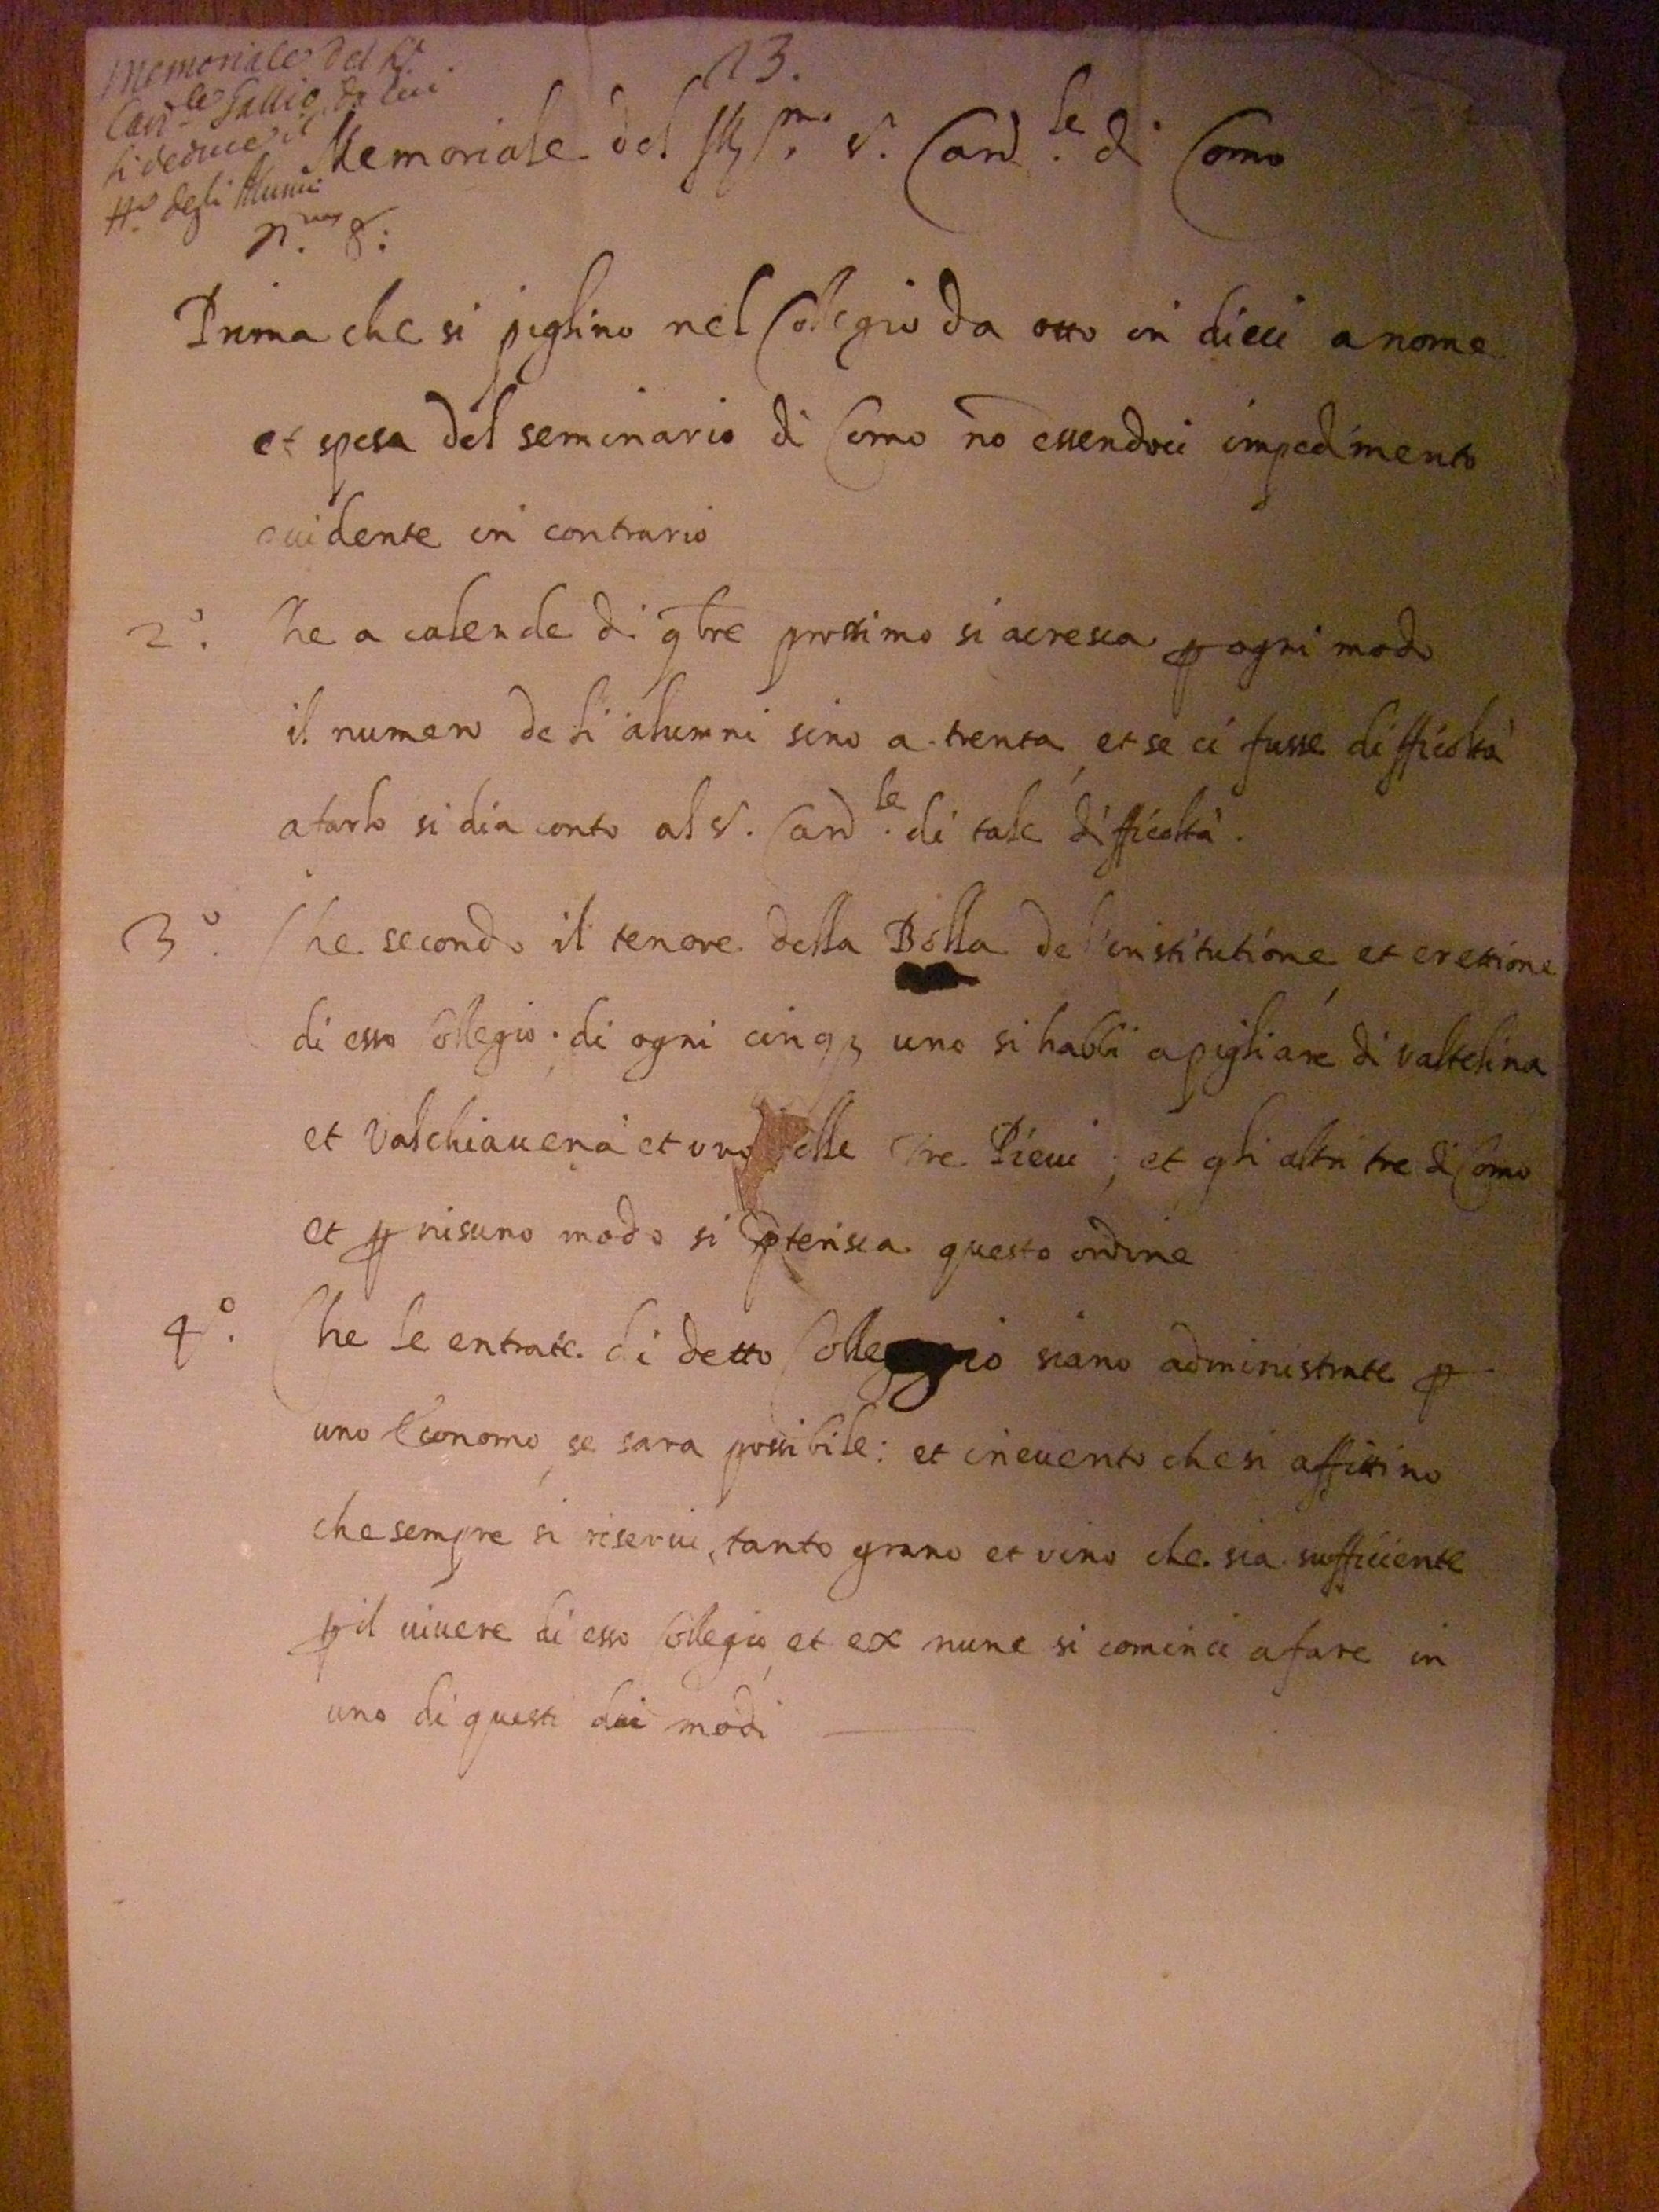 13.
Memoriale del S.r
Car.le Gallio, da cui
si deduce il
n.o degli Alunni
n.ro 8:
Memoriale del Ill.mo S.r Card.le di Como
Prima che si piglino nel Collegio da otto in dieci a nome
et spesa del seminario di Como nō essendoci impedimento
euidente in contrario
2.o Che a calende di 9bre prossimo si acresca ꝑ ogni modo
il numero de li alumni sino a trenta, et se ci fusse difficoltà
a farlo si dia conto al S.r Card.le di tale difficoltà.
3.o Che secondo il tenore della Bolla de l'institutione et erettione
di esso Collegio di ogni cinqꝫ uno si habbi a pigliare di valtelina
et Valchiauena et uno delle tre Pieui; et gli altri tre di Como
et ꝑ nisuno modo si p̄terisca questo ordine
4.o Che le entrate di detto Collegio siano administrate ꝑ
uno Economo, se sara possibile: et in euento che si affittino
che sempre si riserui, tanto grano et vino che sia sufficiente
ꝑ il uiuere di esso Collegio, et ex nunc si cominci a fare in
uno di questi doi modi